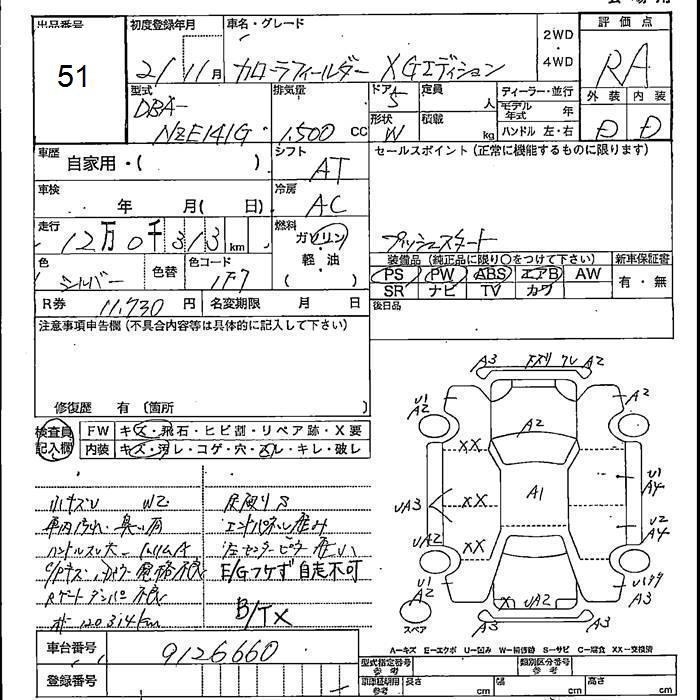 出品番号
51
初度登録年月
21 11 月
車名・グレード
カローラフィールダー XGエディション
2WD
・
4WD
評価点
RA
外装 内装
D D
型式
DBA-
NZE141G
排気量
1.500 CC
ドア
5
形状
W
定員
人
積載
kg
ディーラー・並行
モデル年式 年
ハンドル 左・右
車歴
自家用・( )
シフト
AT
セールスポイント(正常に機能するものに限ります)
プッシュスタート
車検
年 月( 日)
冷房
AC
走行
12万0千313 km
燃料
ガソリン
・
軽・油
( )
色
シルバー
色替
色コード
1F7
装備品(純正品に限り○をつけて下さい)
新車保証書
PS PW ABS エアB AW
SR ナビ TV カワ
有・無
R券 11.730 円
名変期限 月 日
後日品
注意事項申告欄(不具合内容等は具体的に記入して下さい)
修復歴 有〔箇所 〕
検査員
記入欄
FW キズ・飛石・ヒビ割・リペア跡・X要
内装 キズ・汚レ・コゲ・穴・スレ・キレ・破レ
小キズU W2
ハンドルスレ大
エンドパネル歪み
E/Gフケず 自走不可
Rゲートダンパー不良
B/TX
120314km
A3 A2
U1
A2
A2
A2
XX
XX
XX
A1
UA3
U1
A4
U2
A4
UA2
U1
A2
X UA2
A3
A3
A3
スペア
A-キズ E-エクボ U-凹み W-補修跡 S-サビ C-腐食 XX-交換済
車台番号 9126660
登録番号
型式指定番号
参考
類別区分番号
参考
車検証明用
参考
長さ cm
幅 cm
高さ cm